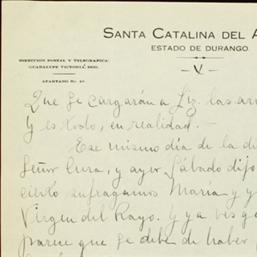 SANTA CATALINA DEL A
ESTADO DE DURANGO.
DIRECCION POSTAL Y TELEGRAFICA:
GUADALUPE VICTORIA, DGO.
APARTADO No.
Que se cargarán a Liz. las
y es todo, en realidad.-
Ese mismo día de la d
Señor Cura, y ayer Sábado dijo
cierto sufragamos María y y
Virgen del Rayo. Y ya ves q
parece que se debe de haber